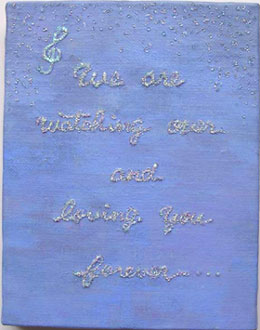 We are
watching over
and
loving you
forever.....